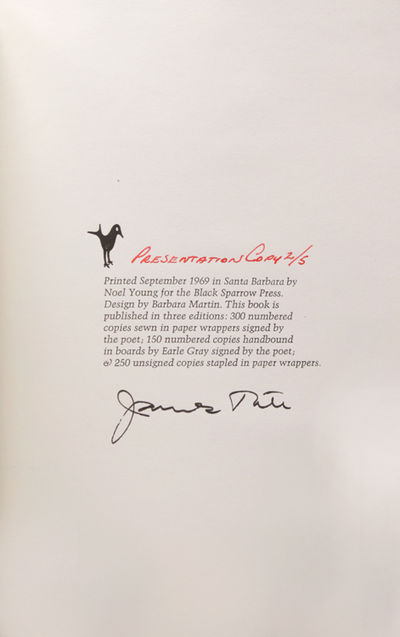 Presentation Copy 2/5
Printed September 1969 in Santa Barbara by
Noel Young for the Black Sparrow Press.
Design by Barbara Martin. This book is
published in three editions: 300 numbered
copies sewn in paper wrappers signed by
the poet; 150 numbered copies handbound
in boards by Earle Gray signed by the poet;
& 250 unsigned copies stapled in paper wrappers.
James Tate